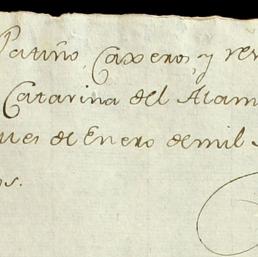 Patiño, Caxeros, y ver
Catarina del Alam
de Enero de mil
os.